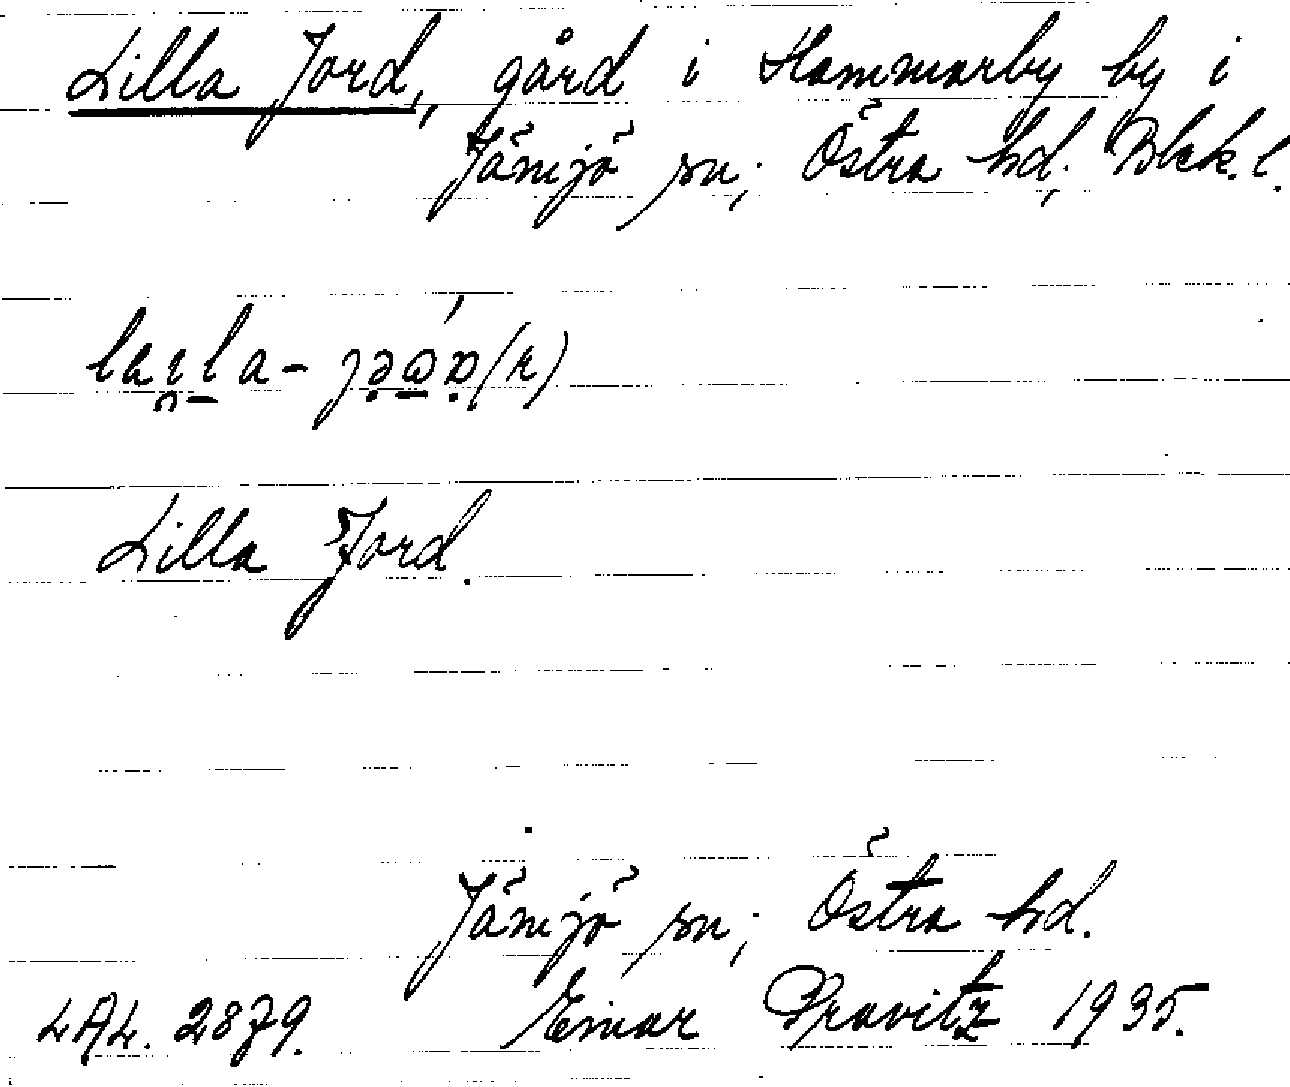 Lilla Jord, gård i Hammarby by i
Jämjö sn; Östra hd. Blek.l.
Lilla Jord.
Jämjö sn; Östra hd.
LAL. 2879. Einar Pravitz 1935.